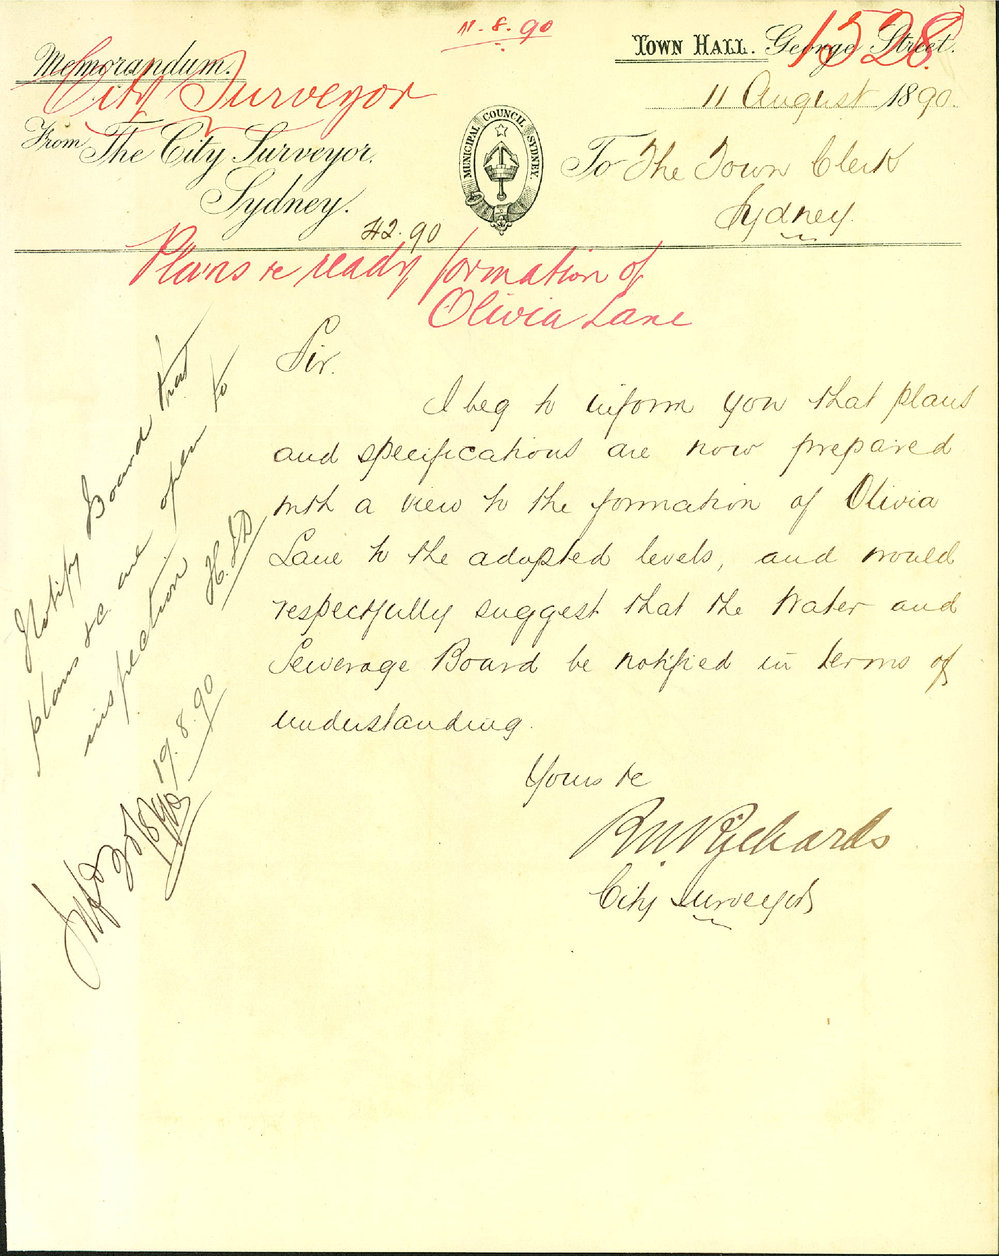 11.8.90
1528
Memorandum.
City Surveyor
Town Hall. George Street.
11 August 1890.
From The City Surveyor,
Sydney.
MUNICIPAL COUNCIL SYDNEY.
To The Town Clerk
Sydney.
42.90
Plans re ready formation of
Olivia Lane
Sir.
I beg to inform you that plans
and specifications are now prepared
with a view to the formation of Olivia
Lane to the adopted levels, and would
respectfully suggest that the Water and
Sewerage Board be notified in terms of
understanding.
Yours &c
City Surveyor
Notify Board that
plans &c are open to
inspection
19.8.90